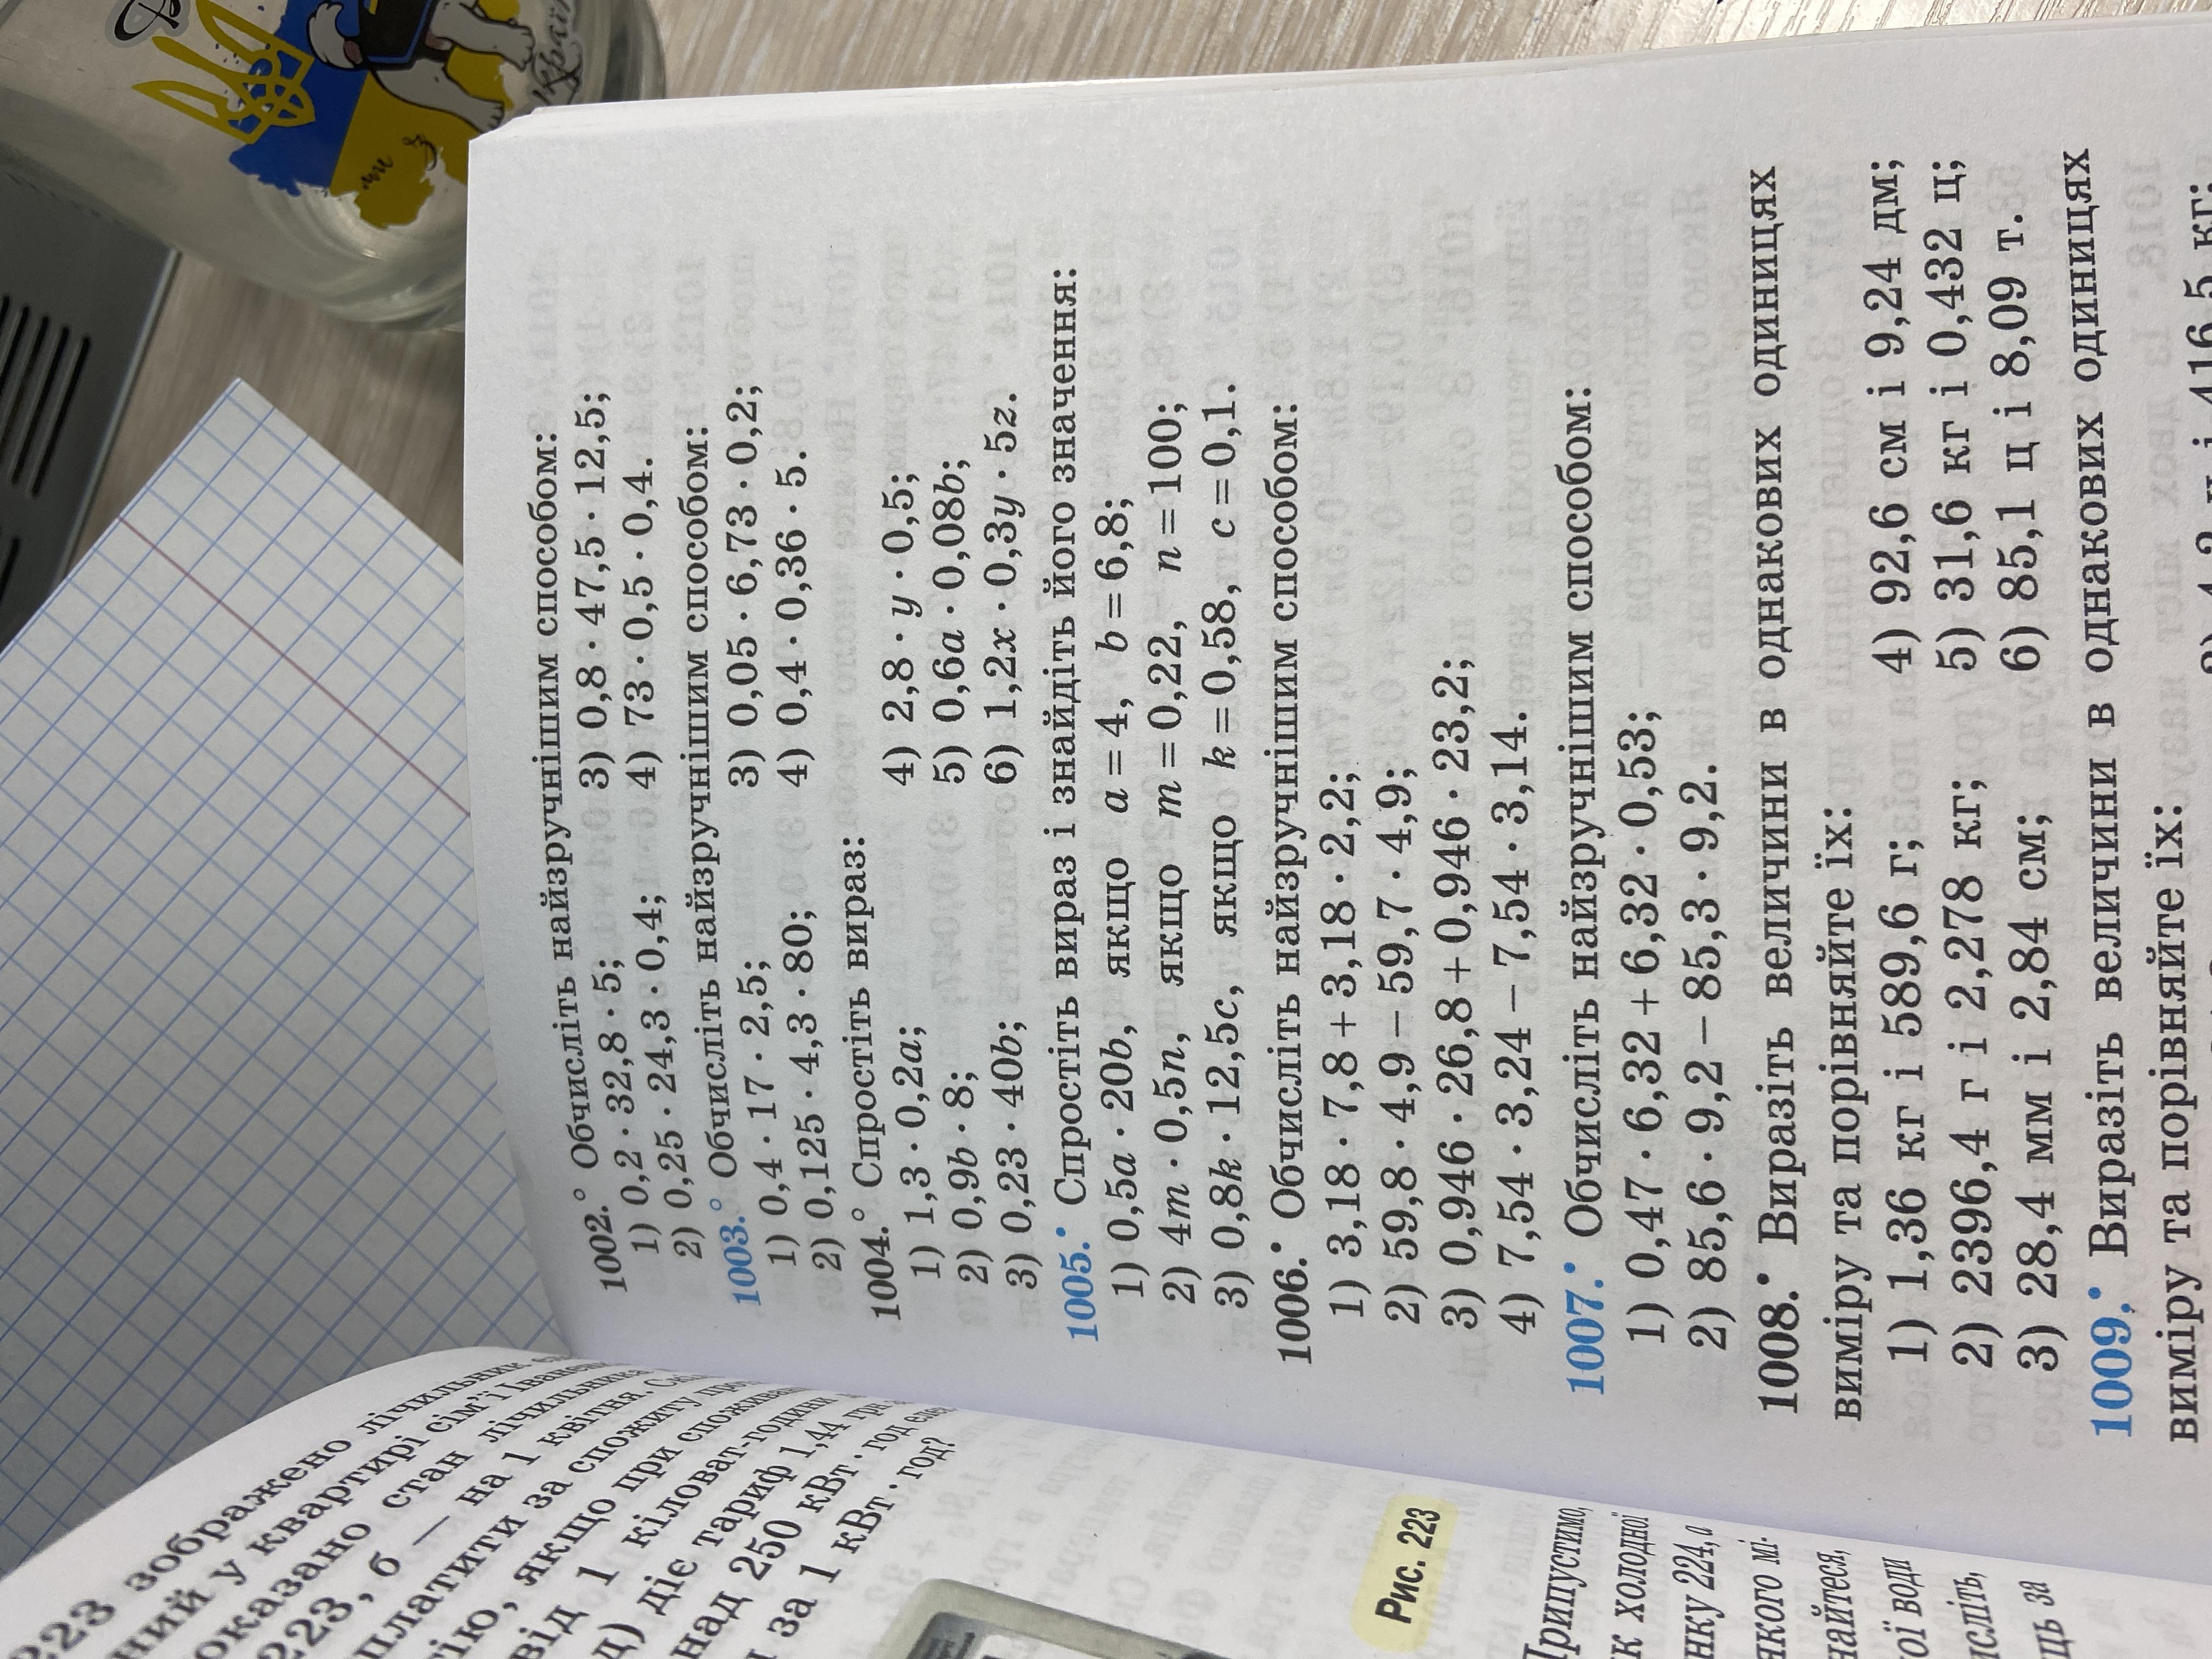 1002.° Обчисліть найзручнішим способом:
1) 0,2 · 32,8 · 5; 3) 0,8 · 47,5 · 12,5;
2) 0,25 · 24,3 · 0,4; 4) 73 · 0,5 · 0,4.
1003.° Обчисліть найзручнішим способом:
1) 0,4 · 17 · 2,5; 3) 0,05 · 6,73 · 0,2;
2) 0,125 · 4,3 · 80; 4) 0,4 · 0,36 · 5.
1004.° Спростіть вираз:
1) 1,3 · 0,2a; 4) 2,8 · y · 0,5;
2) 0,9b · 8; 5) 0,6a · 0,08b;
3) 0,23 · 40b; 6) 1,2x · 0,3y · 5z.
1005.• Спростіть вираз і знайдіть його значення:
1) 0,5a · 20b, якщо a = 4, b = 6,8;
2) 4m · 0,5n, якщо m = 0,22, n = 100;
3) 0,8k · 12,5c, якщо k = 0,58, c = 0,1.
1006.• Обчисліть найзручнішим способом:
1) 3,18 · 7,8 + 3,18 · 2,2;
2) 59,8 · 4,9 − 59,7 · 4,9;
3) 0,946 · 26,8 + 0,946 · 23,2;
4) 7,54 · 3,24 − 7,54 · 3,14.
1007.• Обчисліть найзручнішим способом:
1) 0,47 · 6,32 + 6,32 · 0,53;
2) 85,6 · 9,2 − 85,3 · 9,2.
1008.• Виразіть величини в однакових одиницях
виміру та порівняйте їх:
1) 1,36 кг і 589,6 г; 4) 92,6 см і 9,24 дм;
2) 2396,4 г і 2,278 кг; 5) 31,6 кг і 0,432 ц;
3) 28,4 мм і 2,84 см; 6) 85,1 ц і 8,09 т.
1009.• Виразіть величини в однакових одиницях
виміру та порівняйте їх:
416,5 кг;
223 зображено лічильник
ний у квартирі сім'ї
оказано стан лічильника
223, б — на 1 квітня.
платити за спожиту
гію, якщо при
від 1 кіловат-години
д) діє тариф 1,44 грн
над 250 кВт · год
за 1 кВт · год?
Рис. 223
Припустимо,
ік холодної
нку 224, а
якого мі-
найтеся,
ої води
исліть,
ць за